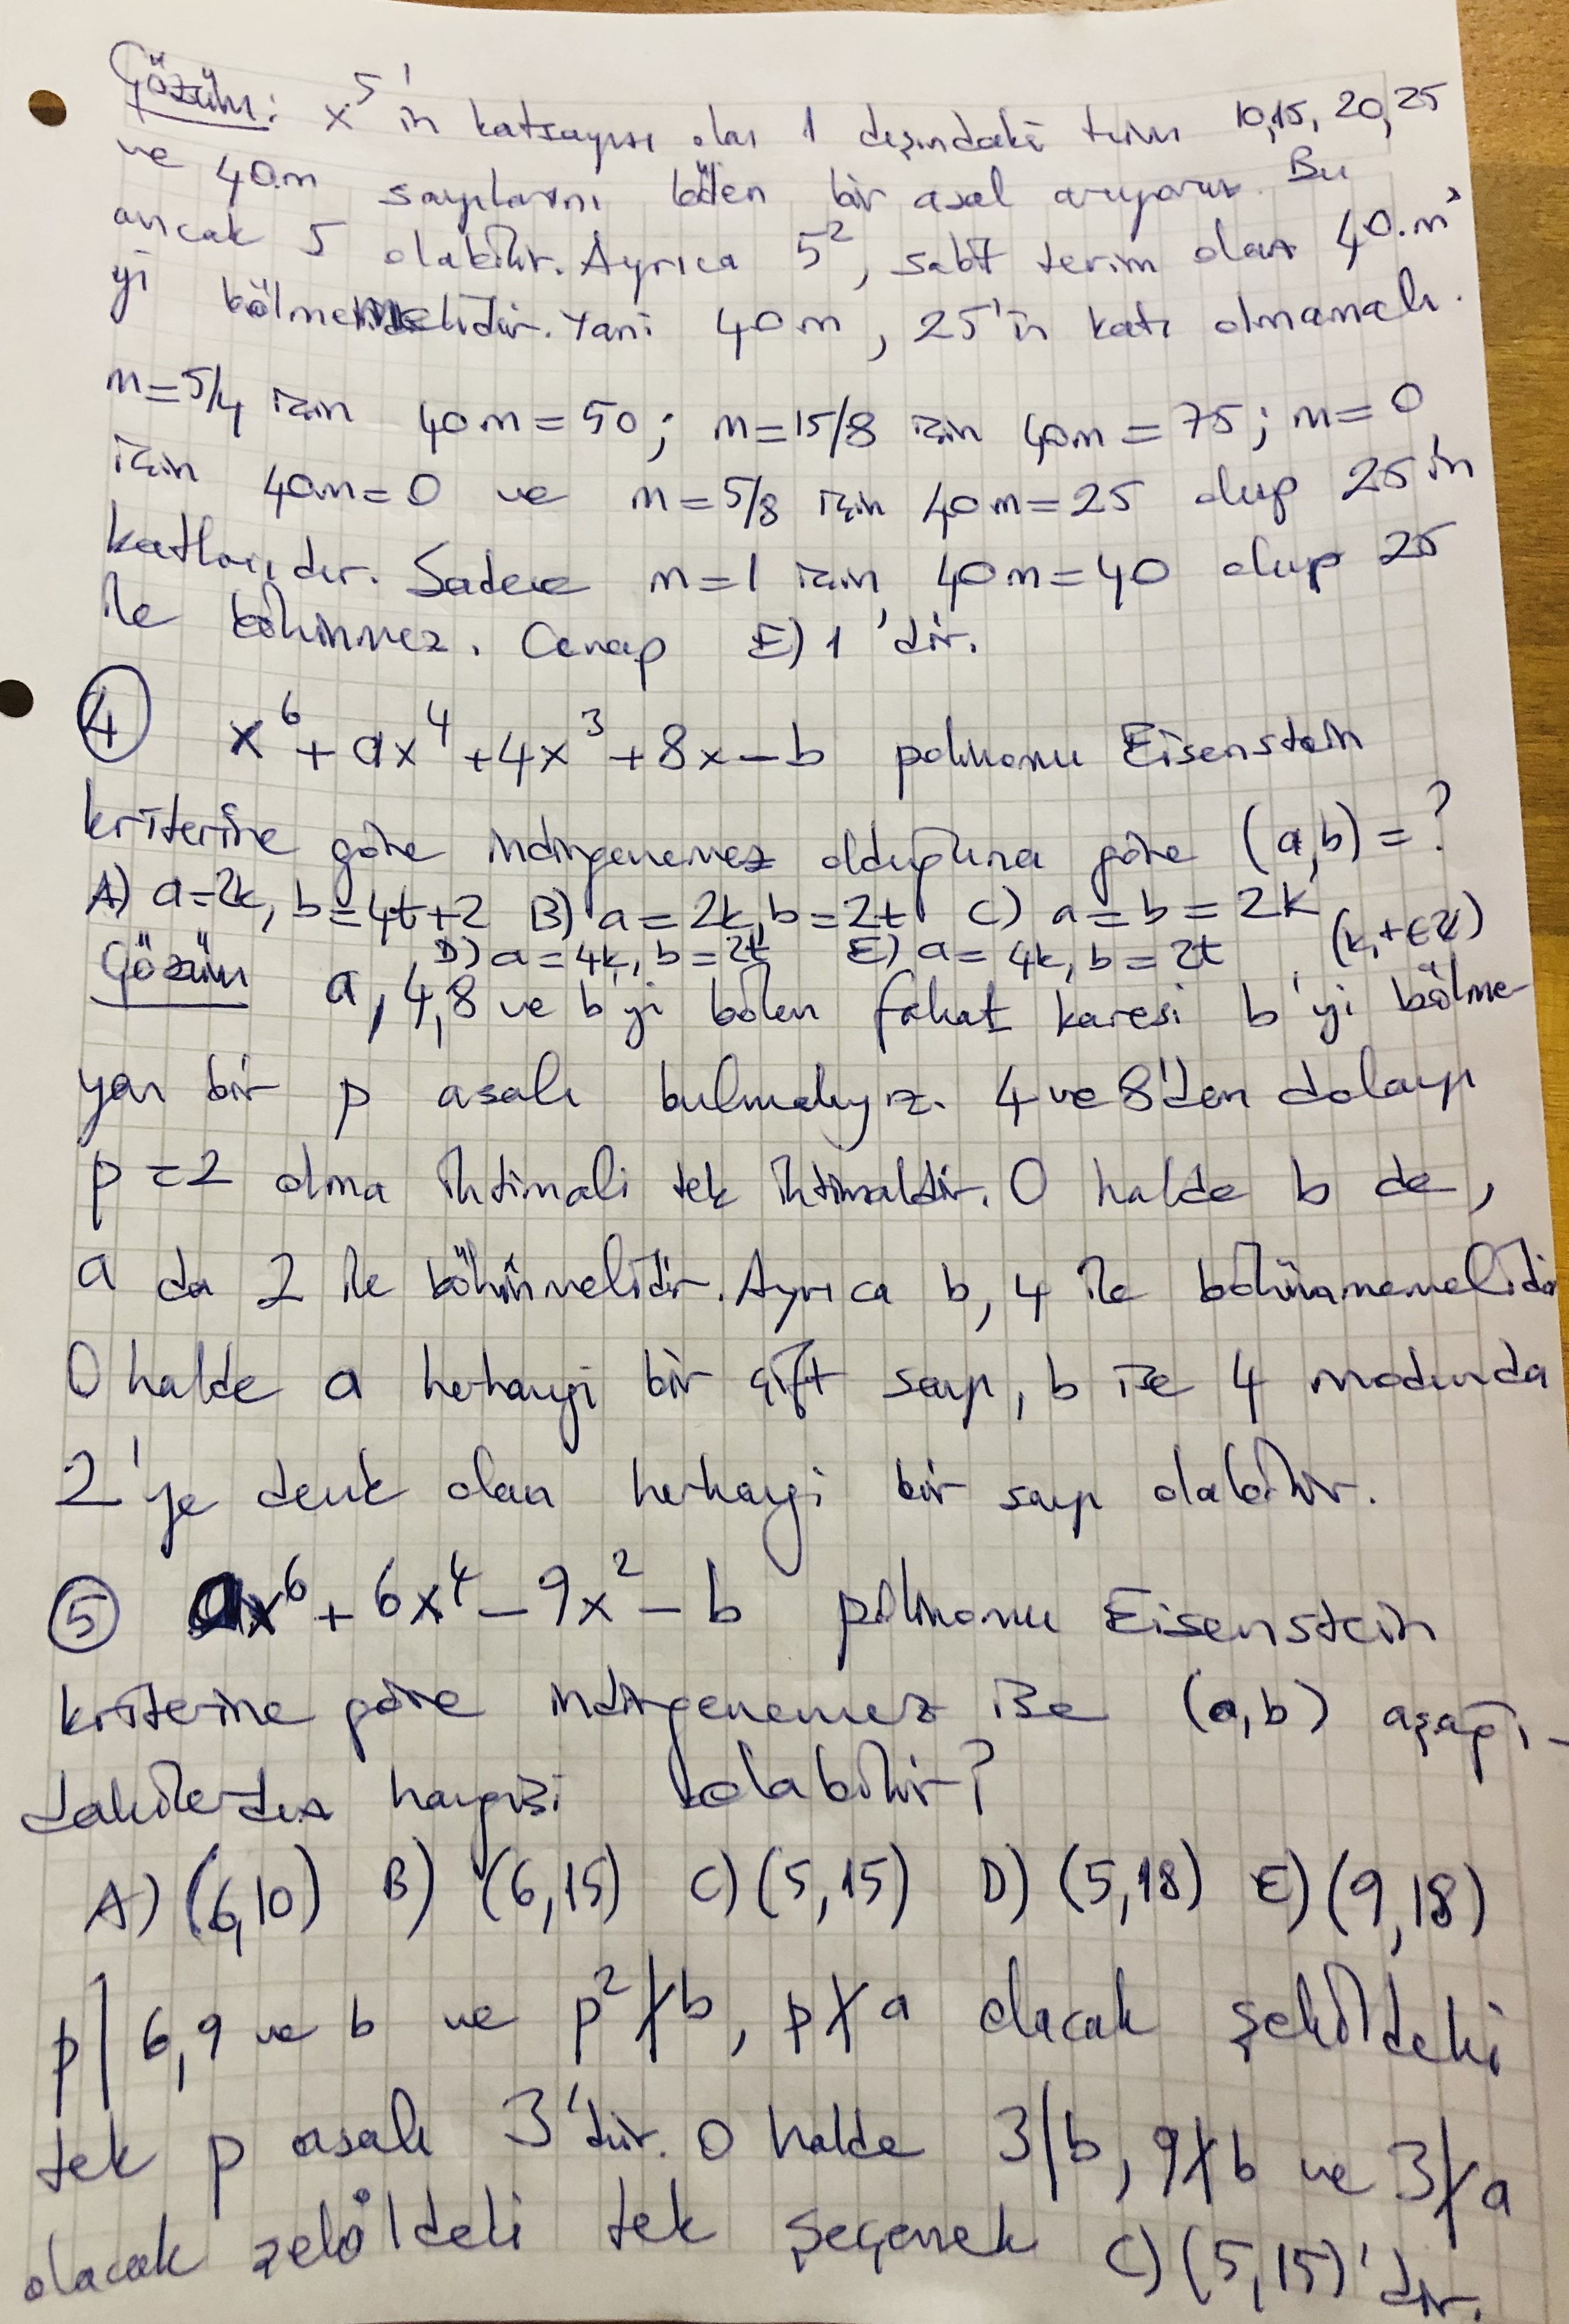 Çözüm: x⁵'in katsayısı olan 1 dışındaki tüm 10,15, 20,25
ve 40m sayılarını bölen bir asal arıyoruz. Bu
ancak 5 olabilir. Ayrıca 5², sabit terim olan 40.m'
yi bölmemelidir. Yani 40m, 25'in katı olmamalı.
m=5/4 için 40m=50; m=15/8 için 40m=75; m=0
için 40m=0 ve m=5/8 için 40m=25 olup 25'in
katlarıdır. Sadece m=1 için 40m=40 olup 25
ile bölünmez. Cevap E) 1'dir.
④ x⁶+ax⁴+4x³+8x-b polinomu Eisenstein
kriterine göre indirgenemez olduğuna göre (a,b)=?
A) a=2k, b=4t+2 B) a=2k, b=2t C) a=b=2k
D) a=4k, b=2t E) a=4k, b=2t (k,t∈Z)
Çözüm a,4,8 ve b'yi bölen fakat karesi b'yi bölme-
yen bir p asalı bulmalıyız. 4 ve 8'den dolayı
p=2 olma ihtimali tek ihtimaldir. O halde b de,
a da 2 ile bölünmelidir. Ayrıca b, 4 ile bölünmemelidir
O halde a herhangi bir çift sayı, b ise 4 modunda
2'ye denk olan herhangi bir sayı olabilir.
⑤ ax⁶+6x⁴-9x²-b polinomu Eisenstein
kriterine göre indirgenemez ise (a,b) aşağı-
dakilerden hangisi olabilir?
A) (6,10) B) (6,15) C) (5,15) D) (5,18) E) (9,18)
p|6,9 ve b ve p²∤b, p∤a olacak şekildeki
tek p asalı 3'tür. O halde 3|b, 9∤b ve 3∤a
olacak şekildeki tek seçenek C) (5,15)'dir.